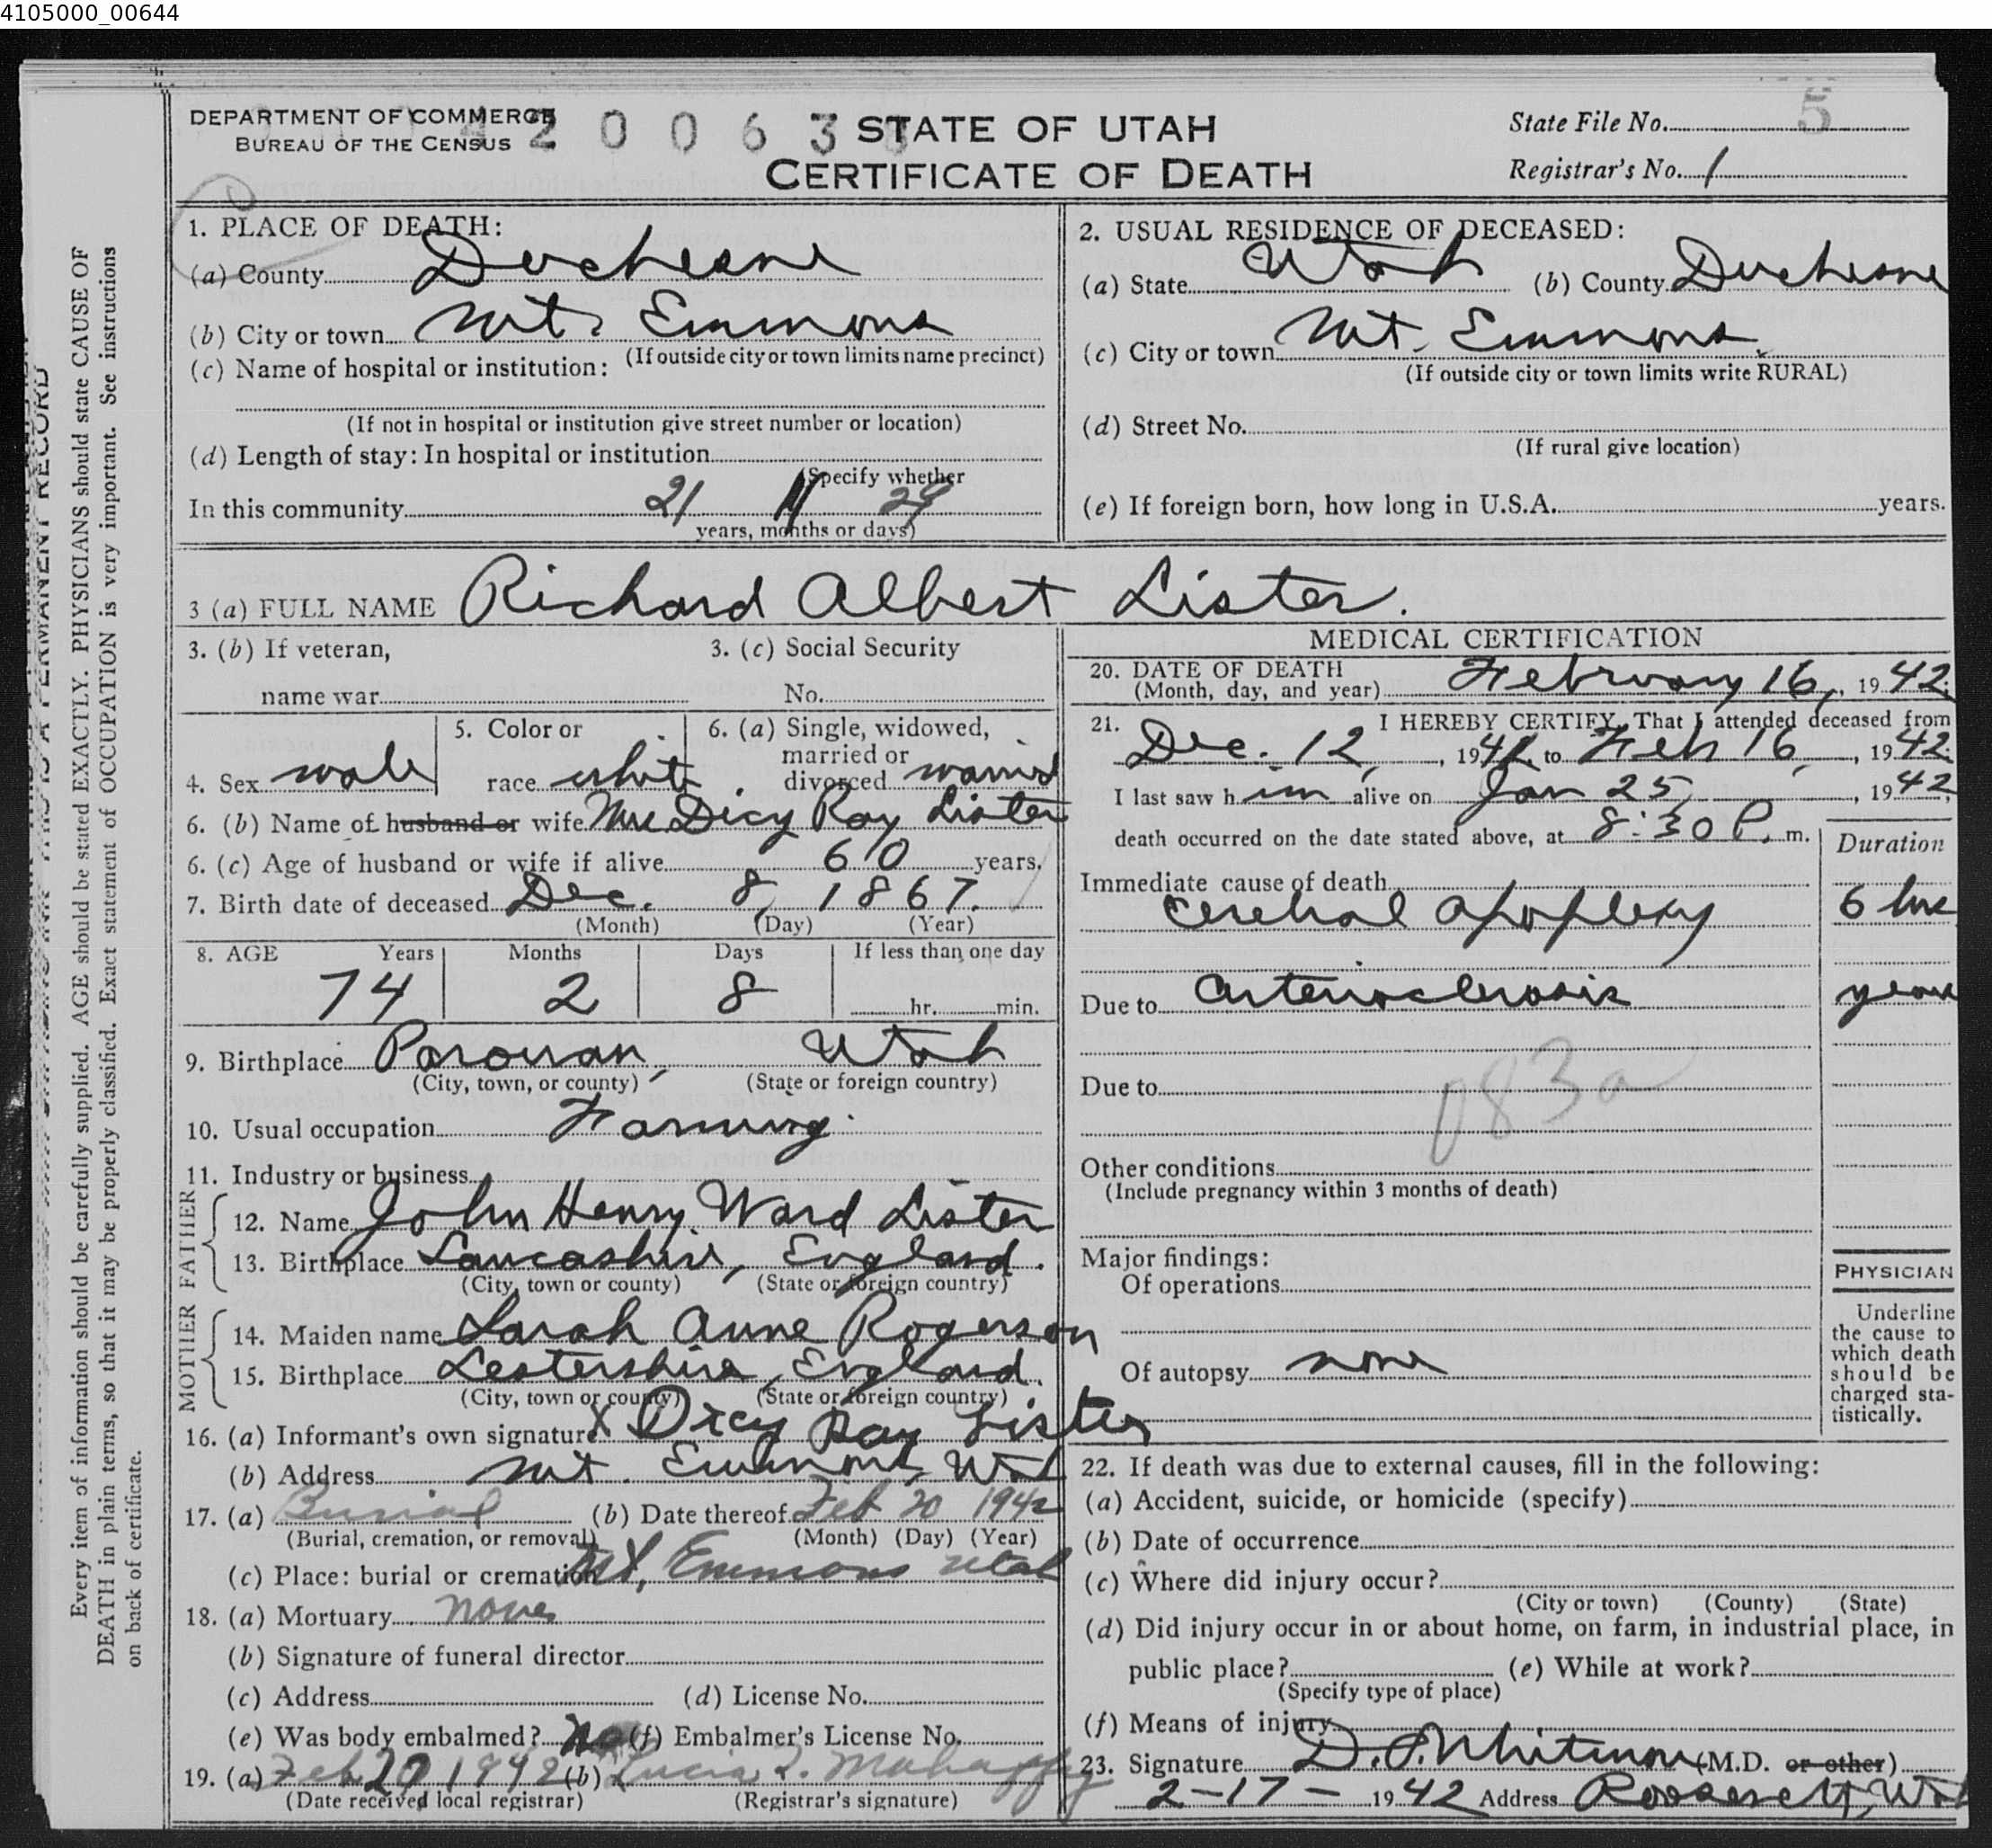 4105000_00644
DEPARTMENT OF COMMERCE
BUREAU OF THE CENSUS
2 0 0 6 3
STATE OF UTAH
CERTIFICATE OF DEATH
State File No. 5
Registrar's No. 1
1. PLACE OF DEATH:
(a) County Duchesne
(b) City or town Mt. Emmons
(If outside city or town limits name precinct)
(c) Name of hospital or institution:
(If not in hospital or institution give street number or location)
(d) Length of stay: In hospital or institution
(Specify whether
In this community 21 11 29
years, months or days)
2. USUAL RESIDENCE OF DECEASED:
(a) State Utah (b) County Duchesne
(c) City or town Mt. Emmons
(If outside city or town limits write RURAL)
(d) Street No.
(If rural give location)
(e) If foreign born, how long in U.S.A. years.
3 (a) FULL NAME Richard Albert Lister.
3. (b) If veteran,
name war
3. (c) Social Security
No.
4. Sex male
5. Color or
race white
6. (a) Single, widowed,
married or
divorced married
6. (b) Name of husband or wife Mrs Dicy Ray Lister
6. (c) Age of husband or wife if alive 60 years.
7. Birth date of deceased Dec. 8, 1867.
(Month) (Day) (Year)
8. AGE Years Months Days If less than one day
74 2 8 hr. min.
9. Birthplace Parowan, Utah
(City, town, or county) (State or foreign country)
10. Usual occupation Farming
11. Industry or business
FATHER
12. Name John Henry Ward Lister
13. Birthplace Lancashire, England.
(City, town or county) (State or foreign country)
MOTHER
14. Maiden name Sarah Anne Rogerson
15. Birthplace Lestershire, England.
(City, town or county) (State or foreign country)
16. (a) Informant's own signature X Dicy Ray Lister
(b) Address Mt. Emmons, Utah
17. (a) Burial (b) Date thereof Feb 20 1942
(Burial, cremation, or removal) (Month) (Day) (Year)
(c) Place: burial or cremation Mt. Emmons Utah
18. (a) Mortuary none
(b) Signature of funeral director
(c) Address (d) License No.
(e) Was body embalmed? No (f) Embalmer's License No.
19. (a) Feb 20 1942 (b) Lucia L. Mahaffey
(Date received local registrar) (Registrar's signature)
MEDICAL CERTIFICATION
20. DATE OF DEATH
(Month, day, and year) February 16, 1942.
21. I HEREBY CERTIFY, That I attended deceased from
Dec. 12, 1941, to Feb 16, 1942.
I last saw him alive on Jan 25, 1942,
death occurred on the date stated above, at 8:30 P. m.
Duration
Immediate cause of death
cerebral apoplexy 6 hrs
Due to arteriosclerosis years
Due to
083a
Other conditions
(Include pregnancy within 3 months of death)
Major findings:
Of operations
Of autopsy none
PHYSICIAN
Underline
the cause to
which death
should be
charged sta-
tistically.
22. If death was due to external causes, fill in the following:
(a) Accident, suicide, or homicide (specify)
(b) Date of occurrence
(c) Where did injury occur?
(City or town) (County) (State)
(d) Did injury occur in or about home, on farm, in industrial place, in
public place? (e) While at work?
(Specify type of place)
(f) Means of injury
23. Signature D. P. Whitmore (M.D. or other)
2-17-1942 Address Roosevelt, Utah
Every item of information should be carefully supplied. AGE should be stated EXACTLY. PHYSICIANS should state CAUSE OF
DEATH in plain terms, so that it may be properly classified. Exact statement of OCCUPATION is very important. See instructions
on back of certificate.